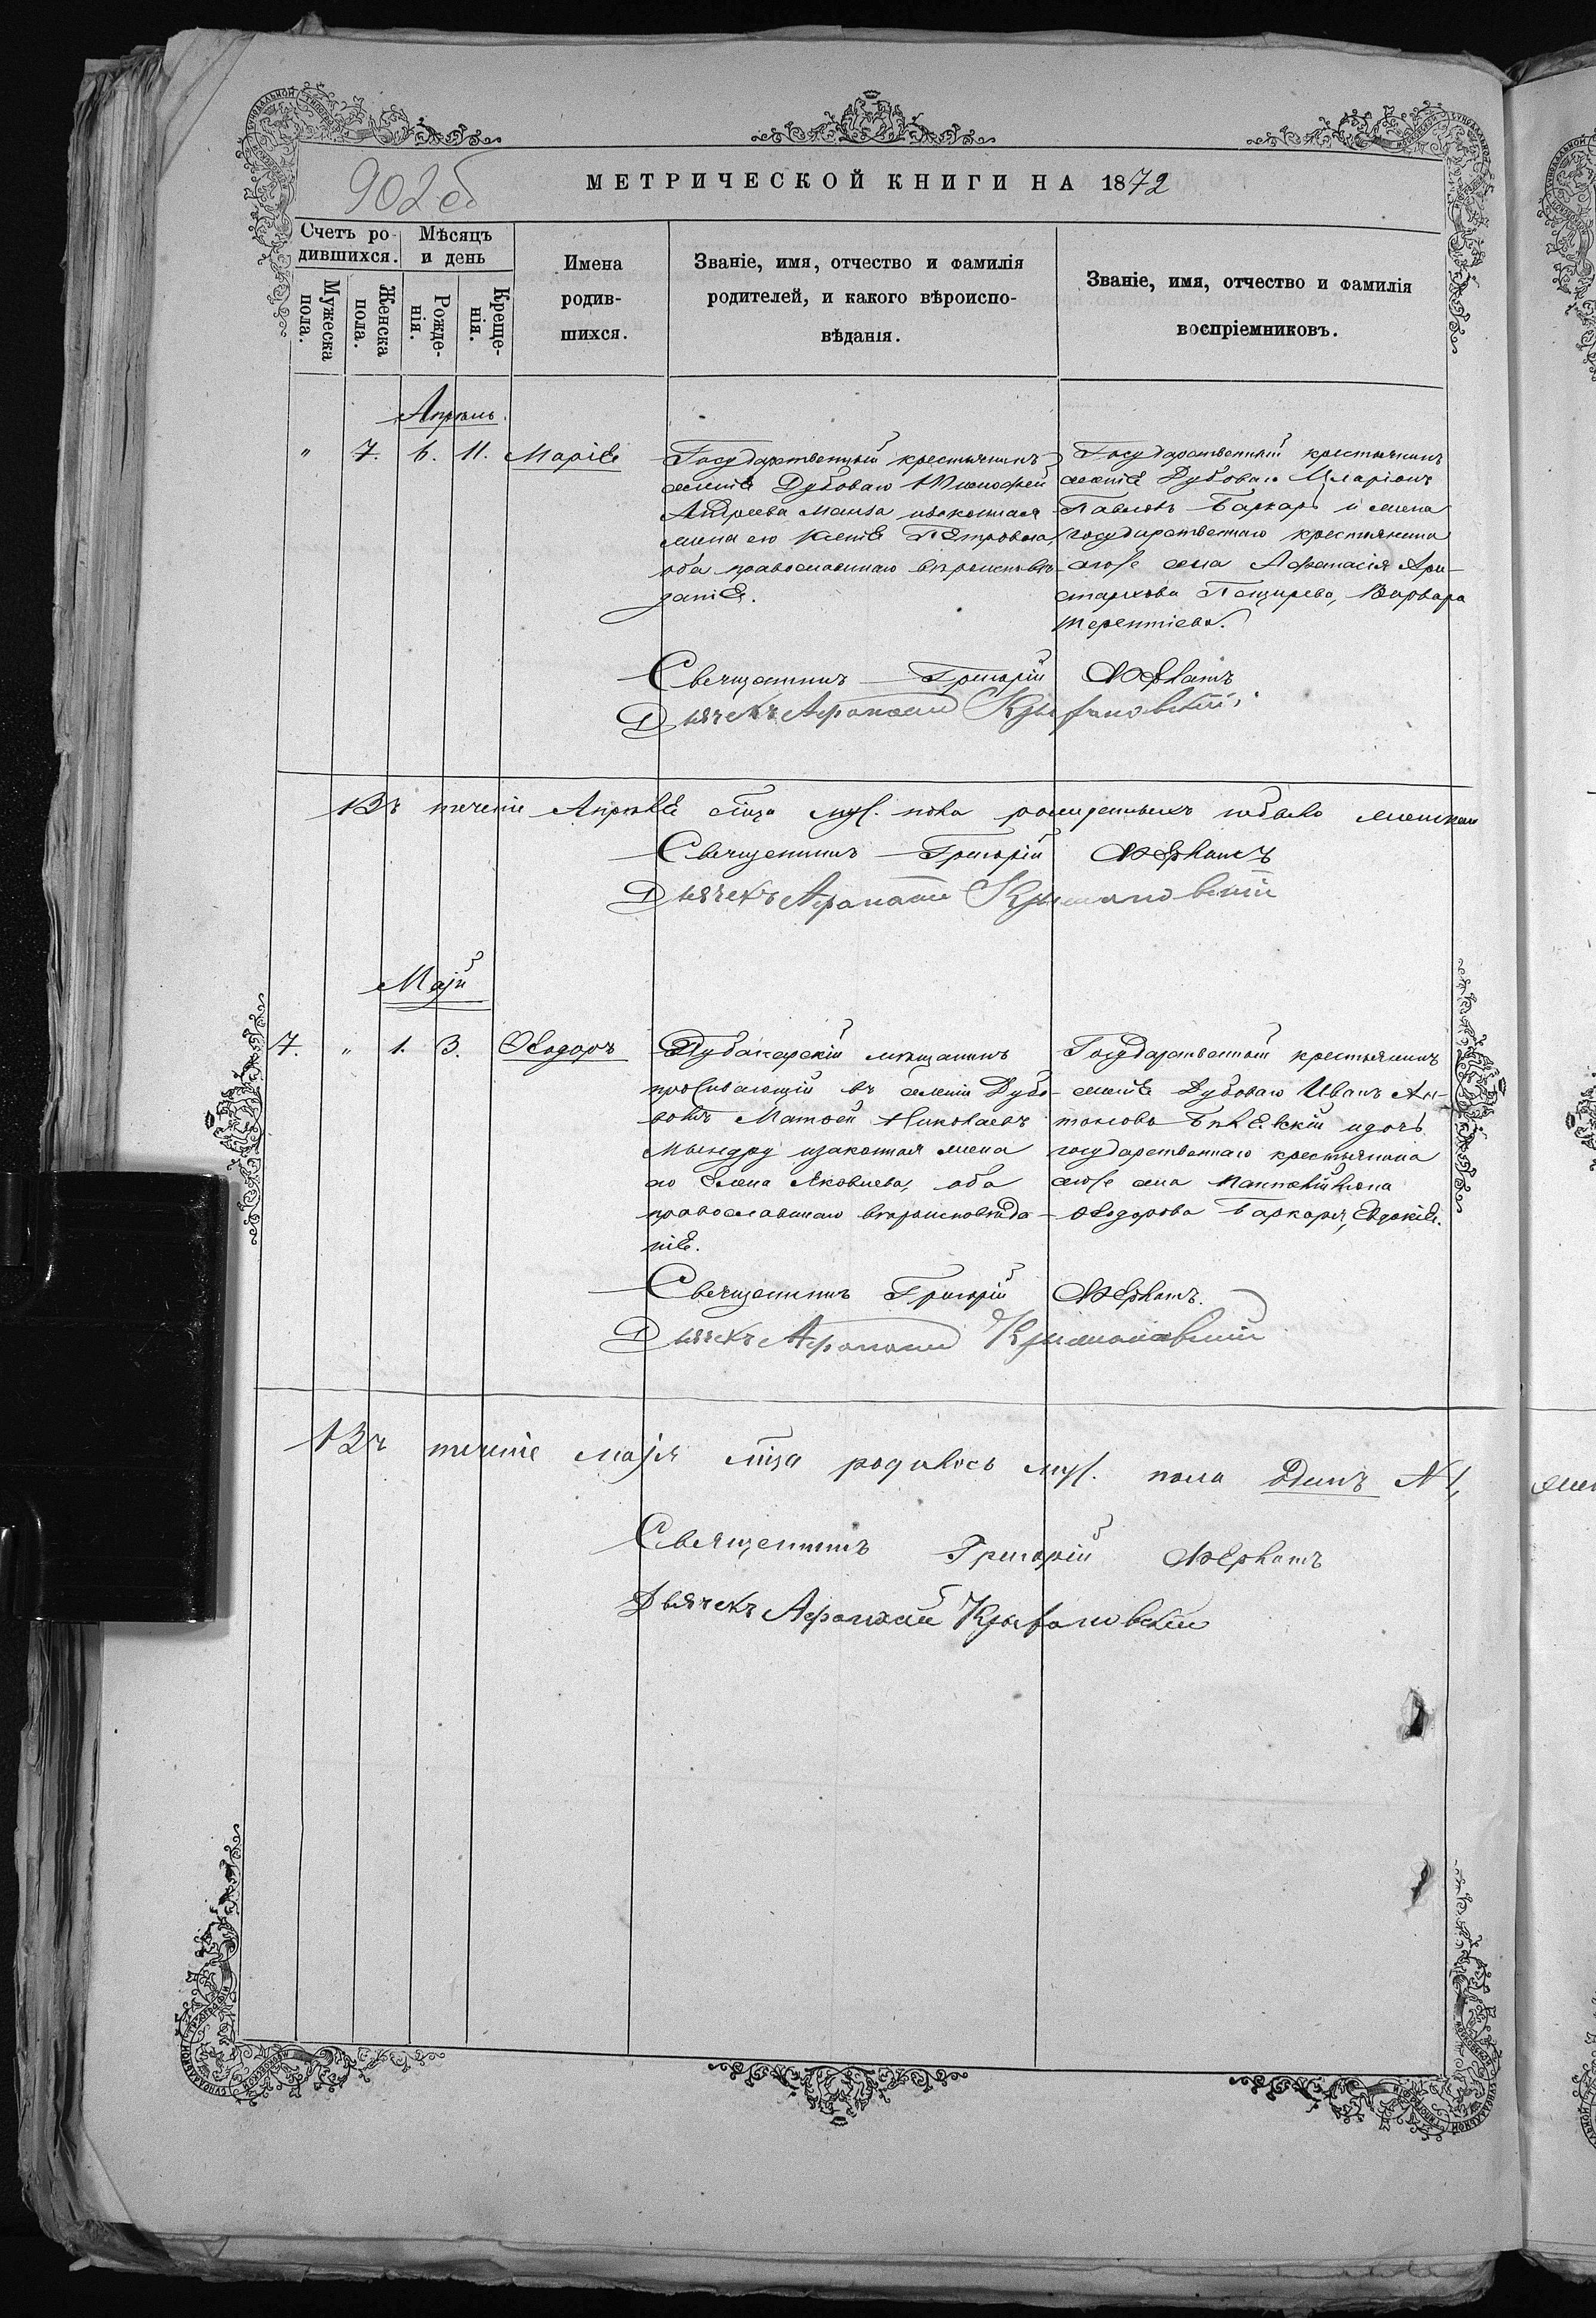 902 об
МЕТРИЧЕСКОЙ КНИГИ НА 1872
Счетъ ро-
дившихся.
Мѣсяцъ
и день
Мужеска
пола.
Женска
пола.
Рожде-
нія.
Креще-
нія.
Имена
родив-
шихся.
Званіе, имя, отчество и фамилія
родителей, и какого вѣроиспо-
вѣданія.
Званіе, имя, отчество и фамилія
воспріемниковъ.
Апрѣль.
" 7. 6. 11. Марія
Государственный крестьянинъ
селенія Дубоваго Тимофей
Андреева изаконная
жена его Ксенія Петровна,
оба православнаго вѣроисповѣ-
данія.
Государственный крестьянинъ
селенія Дубоваго Иларіонъ
Павловъ Баркарь и жена
государственнаго крестьянина
того же села Афанасія Ари-
стархова Варвара
Терентіева.
Священникъ Григорій
Дьячекъ Афанасій Крыжановскій
Въ теченіе Апрѣля мца муж. пола рожденныхъ небыло
Священникъ Григорій
Дьячекъ Афанасій Крыжановскій
Маій
7. " 1. 3. Ѳеодоръ
Дубасарскій мѣщанинъ
проживающій въ селеніи Дубо-
вомъ Матѳей Николаевъ
Мындру изаконная жена
его Елена Яковлева, оба
православнаго вѣроисповѣда-
нія.
Государственный крестьянинъ
селенія Дубоваго Иванъ Ан-
тоновъ идочь
государственнаго крестьянина
тогоже села Пантелеймона
Ѳеодорова Баркаря, Евдокія.
Священникъ Григорій
Дьячекъ Афанасій Крыжановскій
Въ теченіе маія мца родилось муж. пола одинъ N 1,
Священникъ Григорій
Дьячекъ Афанасій Крыжановскій